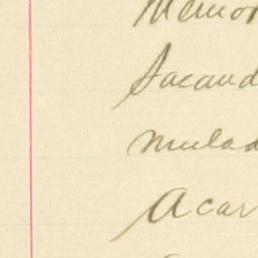 Memor
Sacand
mulad
Acar